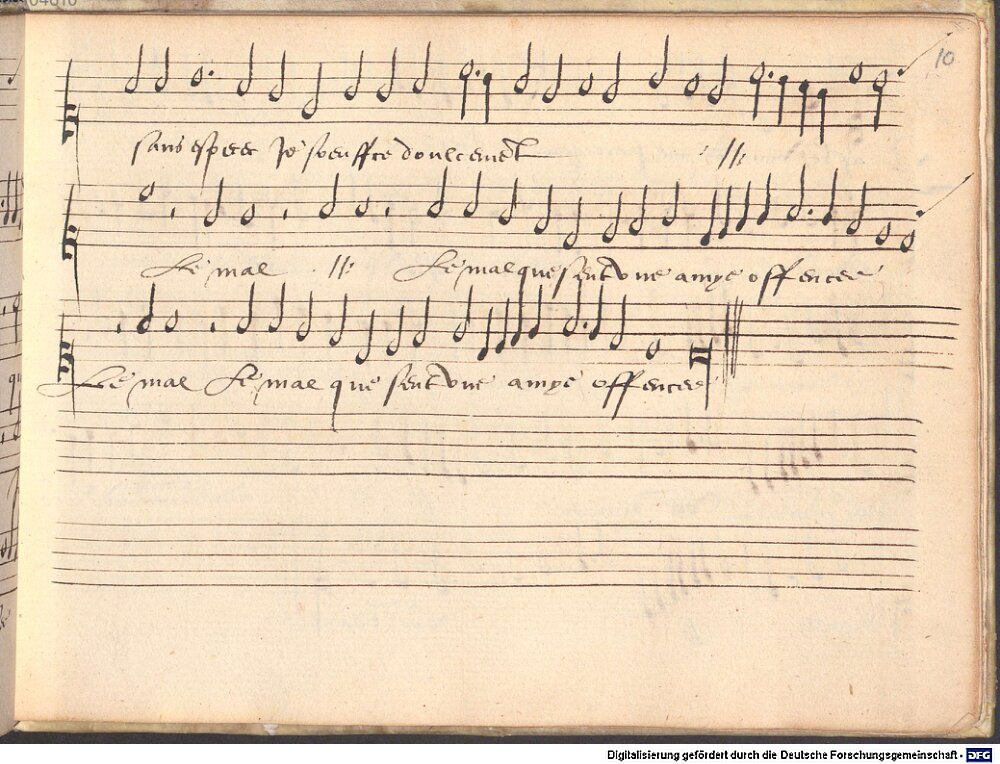 10
sans espere Je seuffre doulcement //
Le mal // Le mal que sent vne amye offencee
Le mal Le mal que sent vne amye offencee
Digitalisierung gefördert durch die Deutsche Forschungsgemeinschaft - DFG